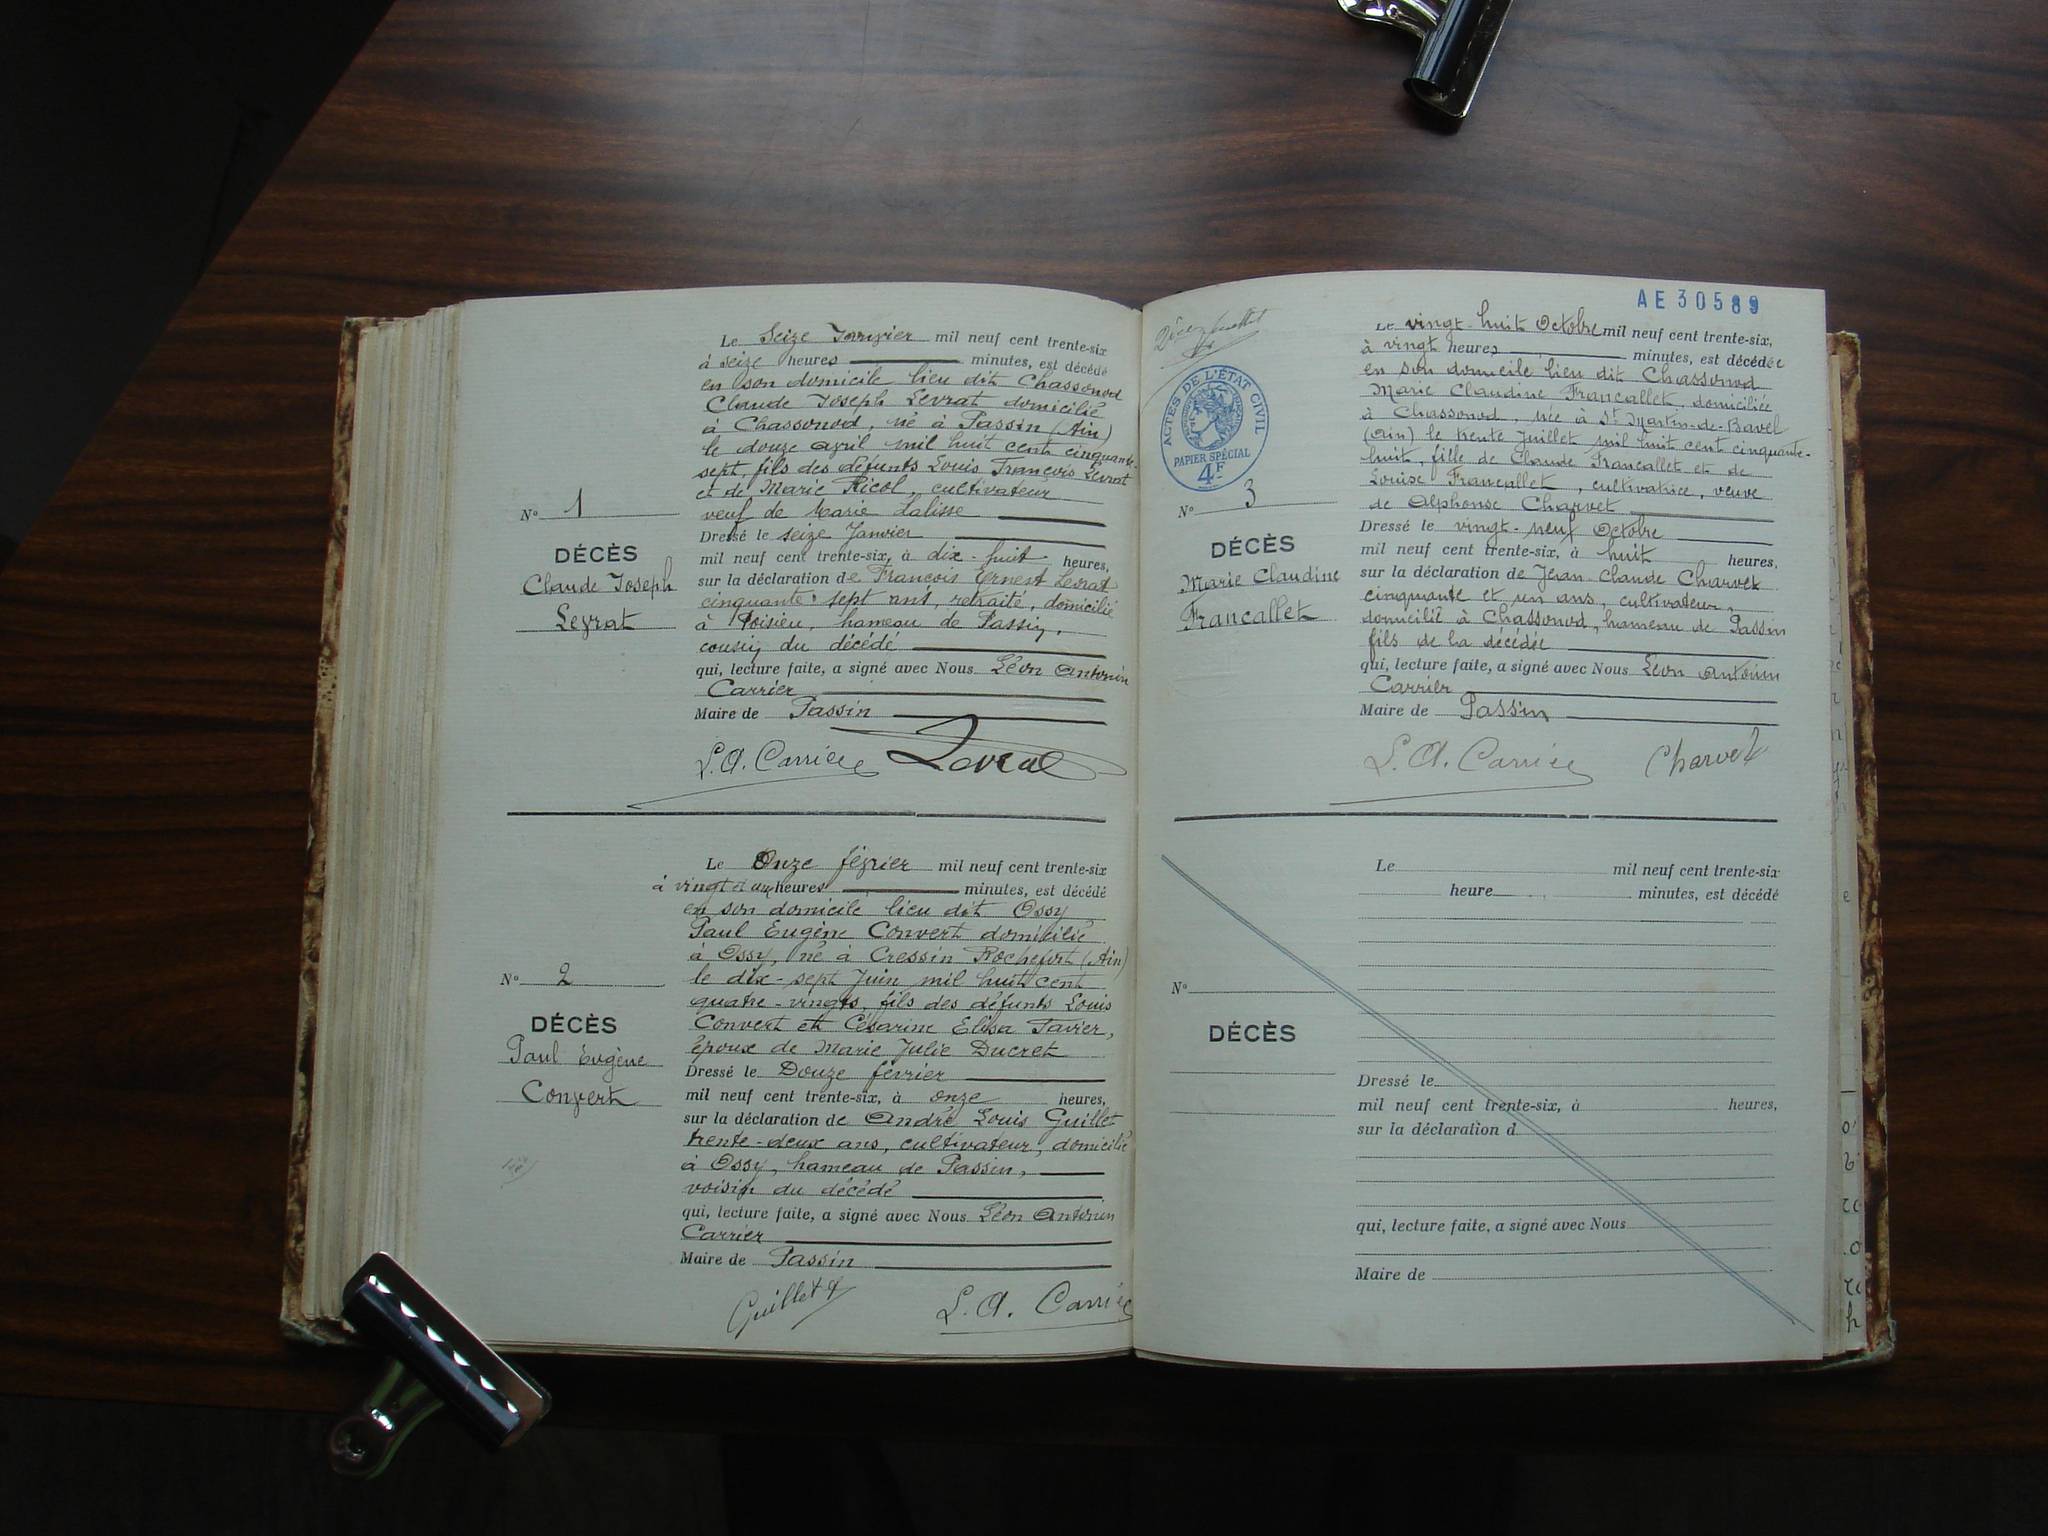 Le Seize Janvier mil neuf cent trente-six
à seize heures minutes, est décédé
en son domicile lieu dit Chassonod
Claude Joseph Levrat domicilié
à Chassonod, né à Passin (Ain)
le douze avril mil huit cent cinquante-
sept, fils des défunts Louis François Levrat
et de Marie Ricol, cultivateur
veuf de Marie Lalisse
N° 1
DÉCÈS
Claude Joseph
Levrat
Dressé le seize Janvier
mil neuf cent trente-six, à dix-huit heures,
sur la déclaration de François Ernest Levrat
cinquante-sept ans, retraité, domicilié
à Poisieu, hameau de Passin,
cousin du décédé
qui, lecture faite, a signé avec Nous Léon Antonin
Carrier
Maire de Passin
L. A. Carrier Levrat
Le Onze février mil neuf cent trente-six
à vingt et une heures minutes, est décédé
en son domicile lieu dit Ossy
Paul Eugène Convert domicilié
à Ossy, né à Cressin Rochefort (Ain)
le dix-sept Juin mil huit cent
quatre-vingts, fils des défunts Louis
Convert et Césarine Elisa Tavier,
époux de Marie Julie Ducret
N° 2
DÉCÈS
Paul Eugène
Convert
Dressé le Douze février
mil neuf cent trente-six, à onze heures,
sur la déclaration de André Louis Guillet
trente-deux ans, cultivateur, domicilié
à Ossy, hameau de Passin,
voisin du décédé
qui, lecture faite, a signé avec Nous Léon Antonin
Carrier
Maire de Passin
Guillet L. A. Carrier
AE 30589
ACTES DE L'ÉTAT CIVIL
PAPIER SPÉCIAL
4F
Le vingt-huit Octobre mil neuf cent trente-six,
à vingt heures minutes, est décédée
en son domicile lieu dit Chassonod
Marie Claudine Francallet, domiciliée
à Chassonod, née à St Martin-de-Bavel
(Ain) le trente Juillet mil huit cent cinquante-
huit, fille de Claude Francallet et de
Louise Francallet, cultivatrice, veuve
de Alphonse Charvet
N° 3
DÉCÈS
Marie Claudine
Francallet
Dressé le vingt-neuf Octobre
mil neuf cent trente-six, à huit heures,
sur la déclaration de Jean Claude Charvet
cinquante et un ans, cultivateur,
domicilié à Chassonod, hameau de Passin
fils de la décédée
qui, lecture faite, a signé avec Nous Léon Antonin
Carrier
Maire de Passin
L. A. Carrier Charvet
Le mil neuf cent trente-six
heure minutes, est décédé
N°
DÉCÈS
Dressé le
mil neuf cent trente-six, à heures,
sur la déclaration d
qui, lecture faite, a signé avec Nous
Maire de